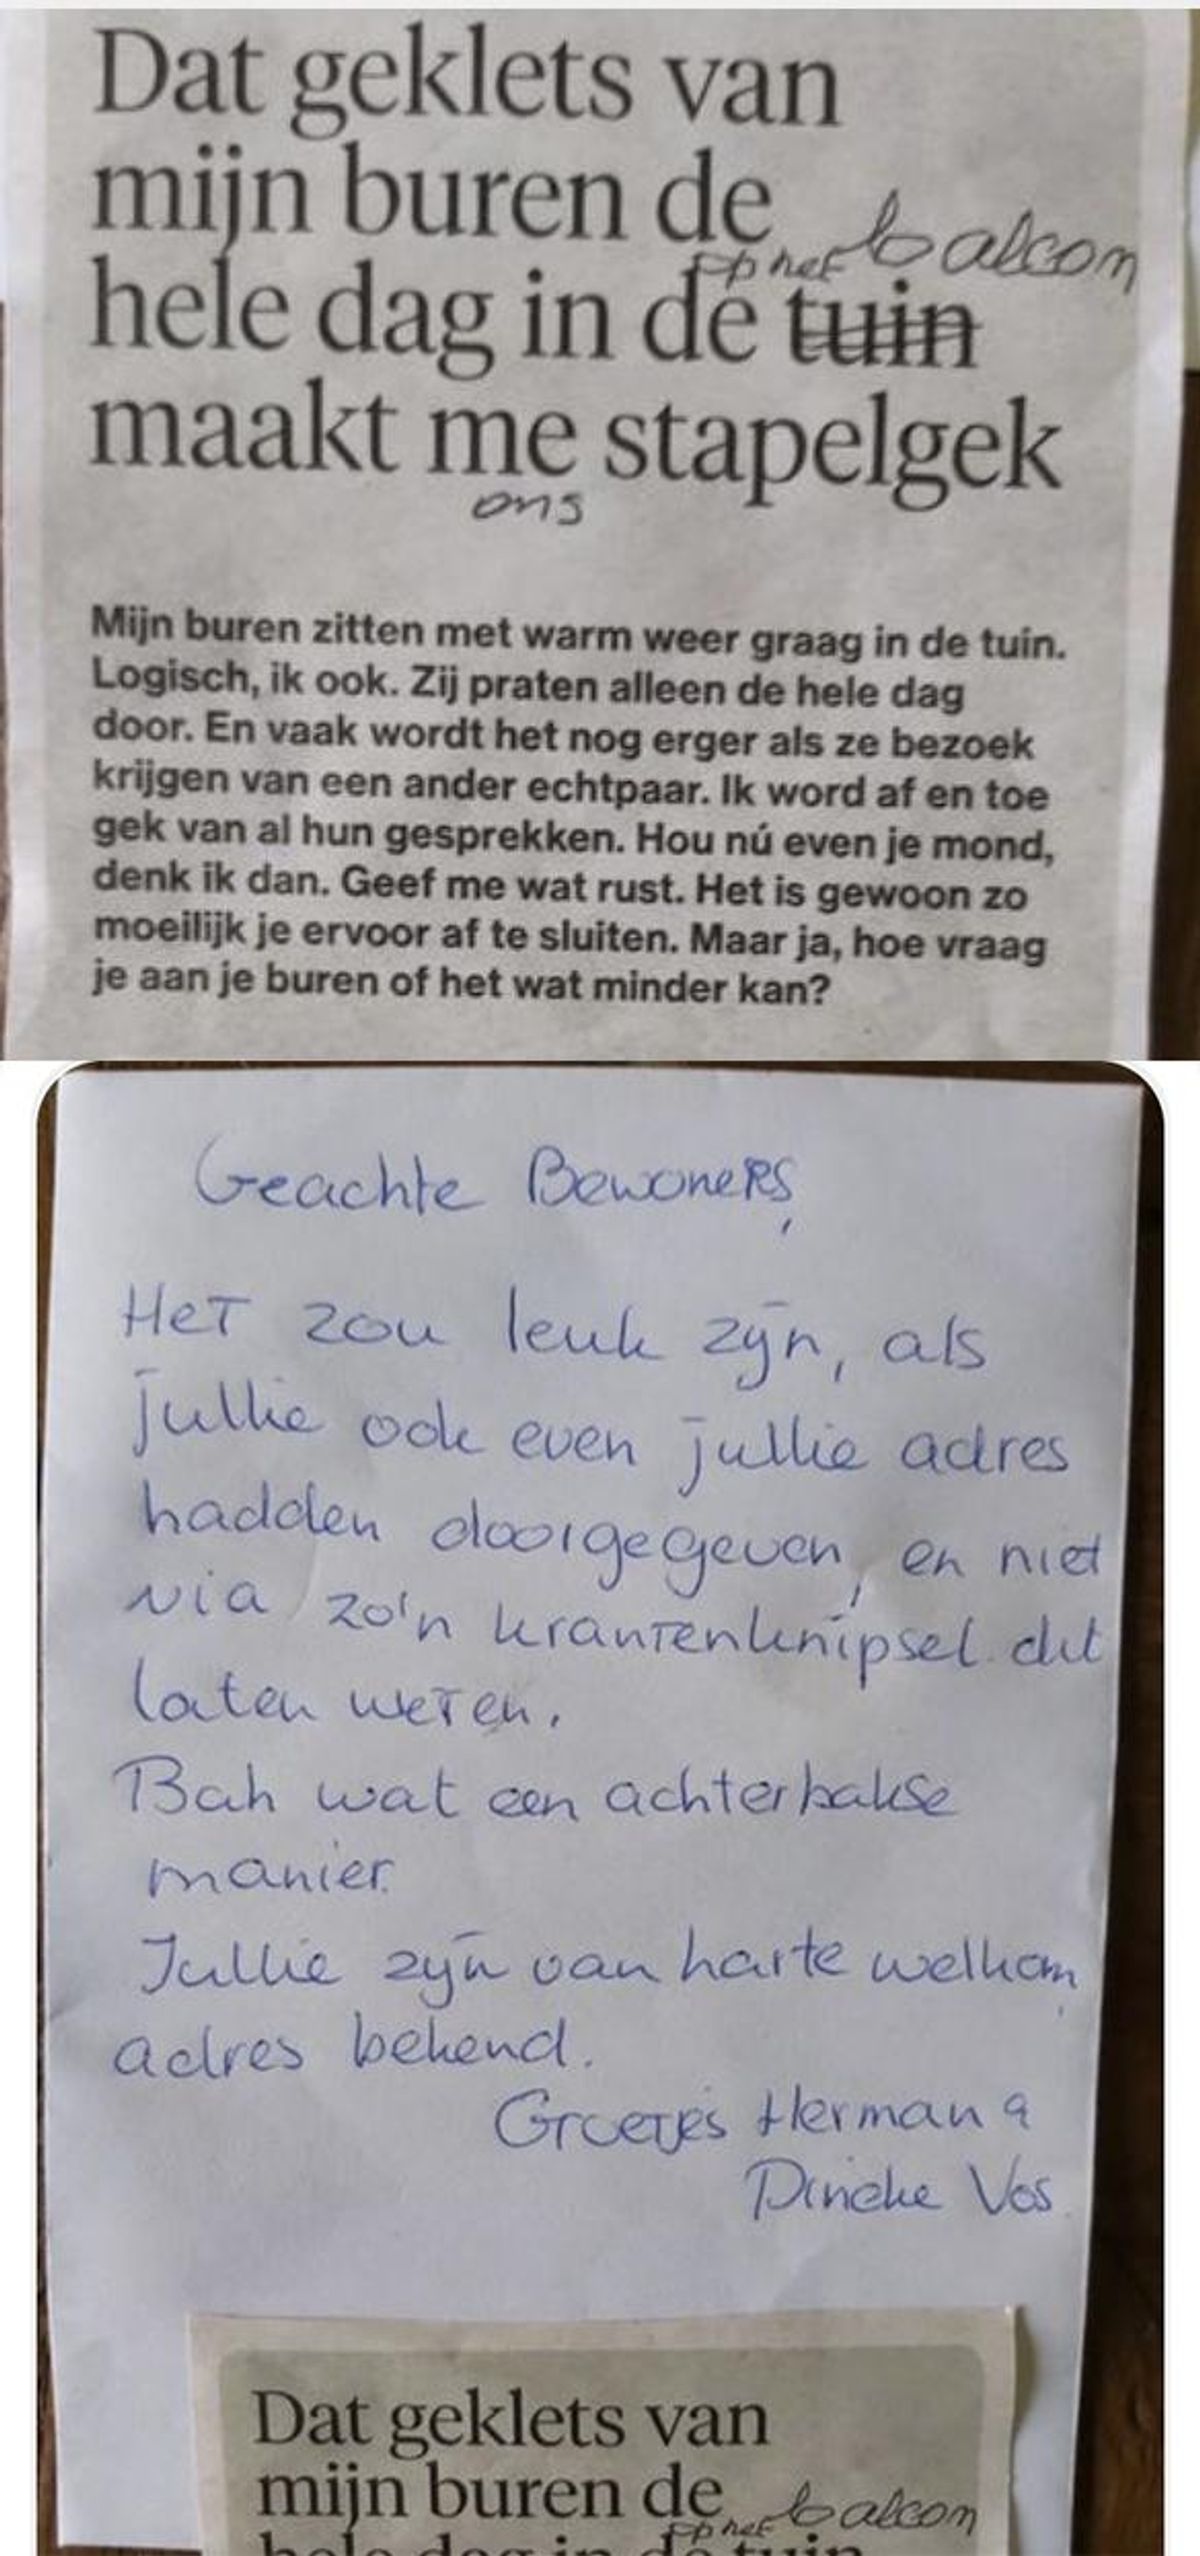 Dat geklets van
mijn buren de
op het balcon
hele dag in de tuin
maakt me stapelgek
ons
Mijn buren zitten met warm weer graag in de tuin.
Logisch, ik ook. Zij praten alleen de hele dag
door. En vaak wordt het nog erger als ze bezoek
krijgen van een ander echtpaar. Ik word af en toe
gek van al hun gesprekken. Hou nú even je mond,
denk ik dan. Geef me wat rust. Het is gewoon zo
moeilijk je ervoor af te sluiten. Maar ja, hoe vraag
je aan je buren of het wat minder kan?
Geachte Bewoners,
Het zou leuk zijn, als
jullie ook even jullie adres
hadden doorgegeven, en niet
via zo'n krantenknipsel dit
laten weten.
Bah wat een achterbakse
manier.
Jullie zijn van harte welkom,
adres bekend.
Groetjes Herman &
Dineke Vos
Dat geklets van
mijn buren de
op het balcon
hele dag in de tuin